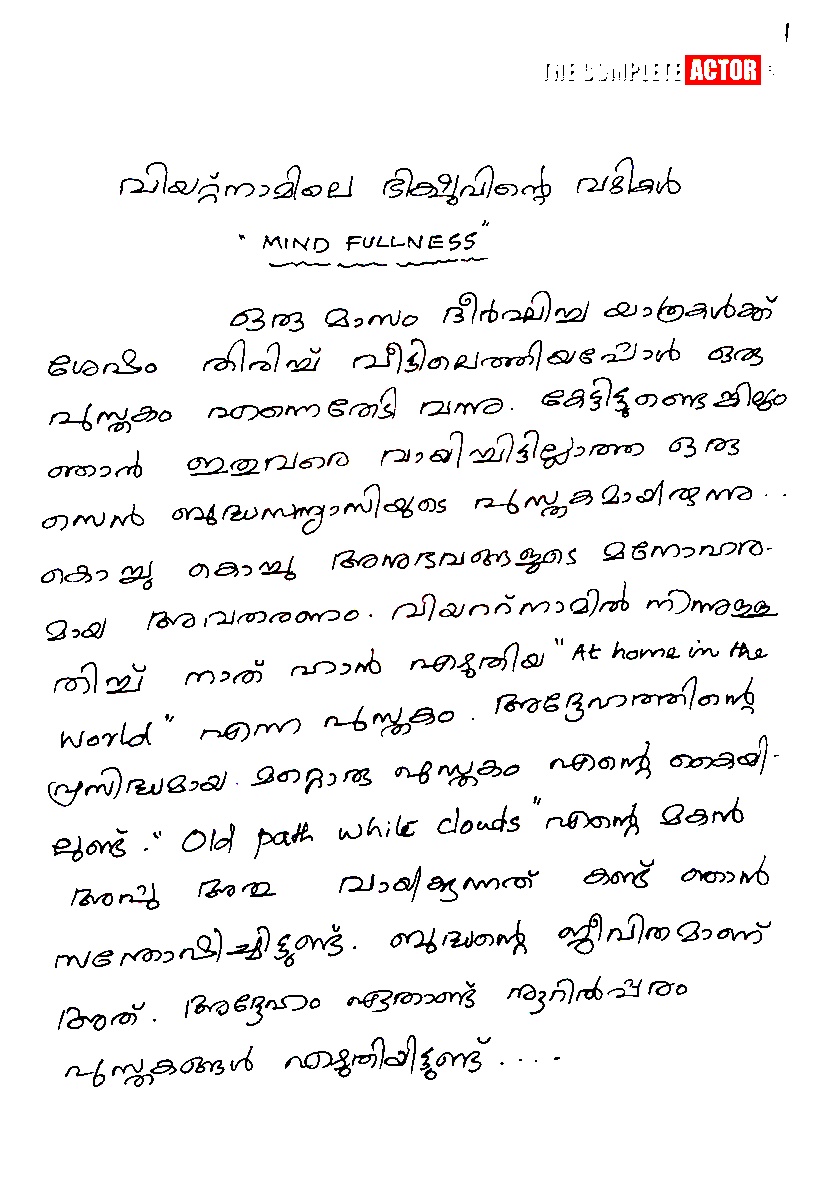 1
THE COMPLETE ACTOR
വിയറ്റ്നാമിലെ ഭിക്ഷുവിന്റെ വഴികൾ
"MIND FULLNESS"
ഒരു മാസം ദീർഘിച്ച യാത്രകൾക്ക്
ശേഷം തിരിച്ച് വീട്ടിലെത്തിയപ്പോൾ ഒരു
പുസ്തകം എന്നെതേടി വന്നു. കേട്ടിട്ടുണ്ടെങ്കിലും
ഞാൻ ഇതുവരെ വായിച്ചിട്ടില്ലാത്ത ഒരു
സെൻ ബുദ്ധസന്യാസിയുടെ പുസ്തകമായിരുന്നു..
കൊച്ചു കൊച്ചു അനുഭവങ്ങളുടെ മനോഹര-
മായ അവതരണം. വിയററ്നാമിൽ നിന്നുള്ള
തിച്ച് നാത് ഹാൻ എഴുതിയ "At home in the
World" എന്ന പുസ്തകം. അദ്ദേഹത്തിന്റെ
പ്രസിദ്ധമായ മറ്റൊരു പുസ്തകം എന്റെ കൈയി-
ലുണ്ട്. "Old path while clouds" എന്റെ മകൻ
അപ്പു അത് വായിക്കുന്നത് കണ്ട് ഞാൻ
സന്തോഷിച്ചിട്ടുണ്ട്. ബുദ്ധന്റെ ജീവിതമാണ്
അത്. അദ്ദേഹം ഏതാണ്ട് നൂറിൽപ്പരം
പുസ്തകങ്ങൾ എഴുതിയിട്ടുണ്ട്....